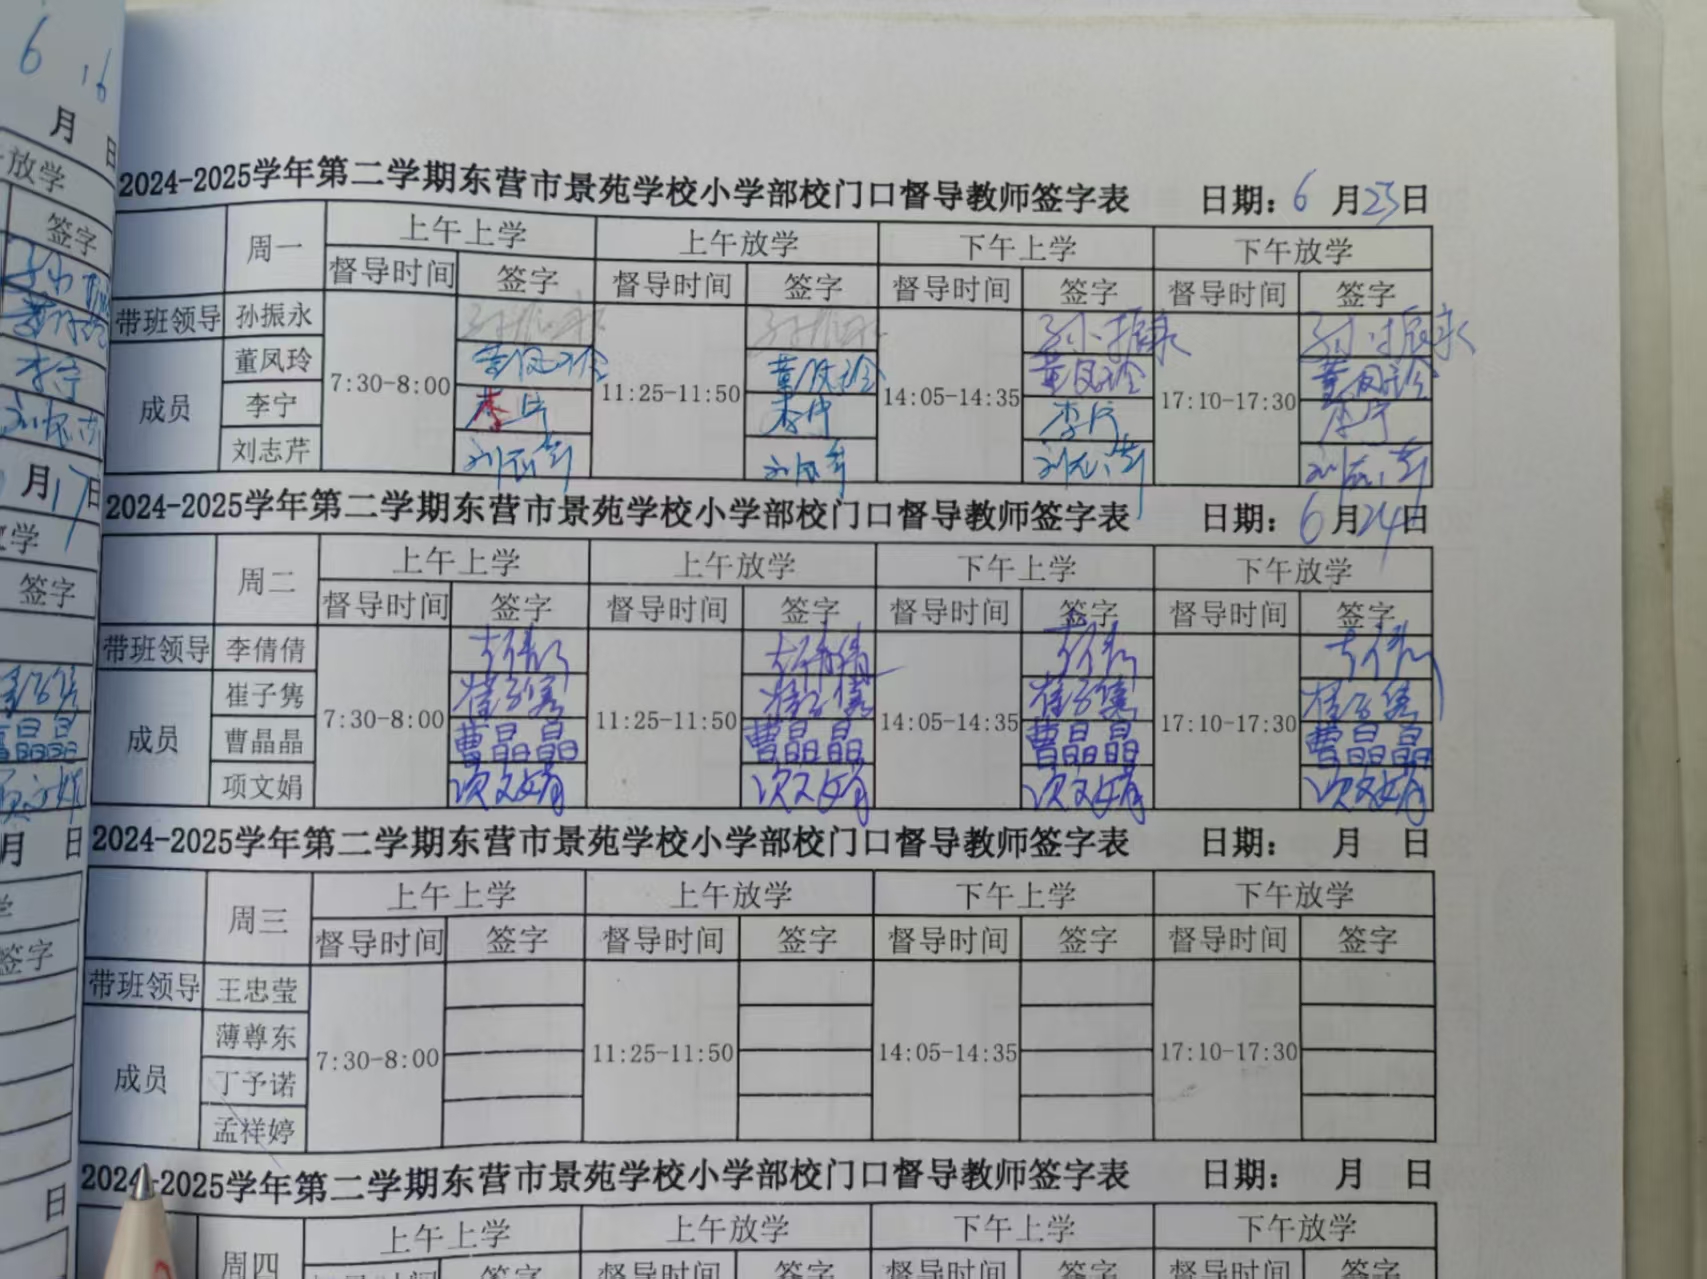 6 16
月 日
放学
签字
李宁
月17日
学
签字
月 日
签字
日
2024-2025学年第二学期东营市景苑学校小学部校门口督导教师签字表 日期：6月23日
周一 上午上学 上午放学 下午上学 下午放学
督导时间 签字 督导时间 签字 督导时间 签字 督导时间 签字
带班领导 孙振永 孙振永 孙振永 孙振永 孙振永
董凤玲 董凤玲 董凤玲 董凤玲 董凤玲
成员 7:30-8:00 11:25-11:50 14:05-14:35 17:10-17:30
李宁 李宁 李宁 李宁 李宁
刘志芹 刘志芹 刘志芹 刘志芹 刘志芹
2024-2025学年第二学期东营市景苑学校小学部校门口督导教师签字表 日期：6月24日
周二 上午上学 上午放学 下午上学 下午放学
督导时间 签字 督导时间 签字 督导时间 签字 督导时间 签字
带班领导 李倩倩 李倩倩 李倩倩 李倩倩 李倩倩
崔子隽 崔子隽 崔子隽 崔子隽 崔子隽
成员 7:30-8:00 11:25-11:50 14:05-14:35 17:10-17:30
曹晶晶 曹晶晶 曹晶晶 曹晶晶 曹晶晶
项文娟 项文娟 项文娟 项文娟 项文娟
2024-2025学年第二学期东营市景苑学校小学部校门口督导教师签字表 日期： 月 日
周三 上午上学 上午放学 下午上学 下午放学
督导时间 签字 督导时间 签字 督导时间 签字 督导时间 签字
带班领导 王忠莹
薄尊东
成员 7:30-8:00 11:25-11:50 14:05-14:35 17:10-17:30
丁予诺
孟祥婷
2024-2025学年第二学期东营市景苑学校小学部校门口督导教师签字表 日期： 月 日
周四 上午上学 上午放学 下午上学 下午放学
督导时间 签字 督导时间 签字 督导时间 签字 督导时间 签字